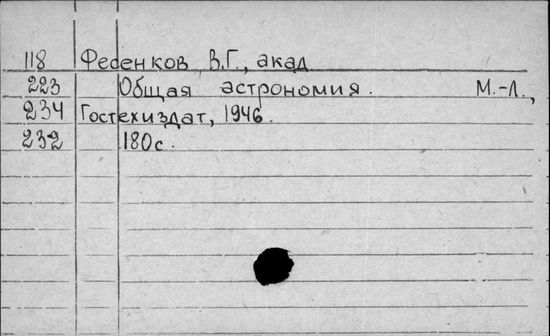 118 Фесенков, В.Г., акад
223 Общая астрономия. М.-Л.,
234 Гостехиздат, 1946.
232 180с.